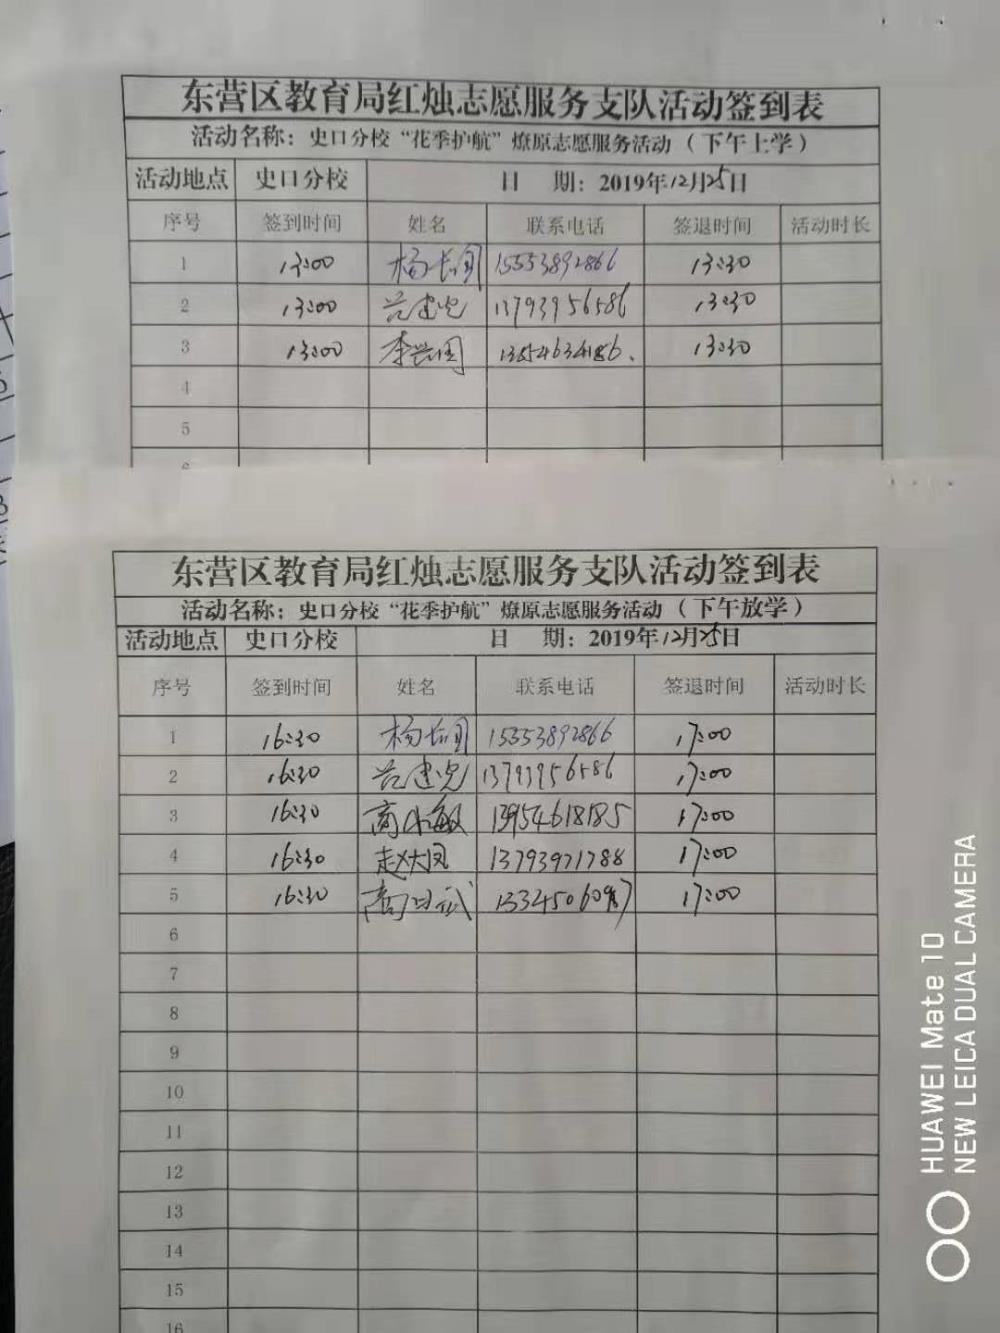 东营区教育局红烛志愿服务支队活动签到表
活动名称：史口分校“花季护航”燎原志愿服务活动（下午上学）
活动地点 史口分校 日 期：2019年12月25日
序号 签到时间 姓名 联系电话 签退时间 活动时长
1 13:00 杨长国 15553892866 13:30
2 13:00 范建光 13793956586 13:30
3 13:00 李兴国 13854634186. 13:30
4
5
6
东营区教育局红烛志愿服务支队活动签到表
活动名称：史口分校“花季护航”燎原志愿服务活动（下午放学）
活动地点 史口分校 日 期：2019年12月25日
序号 签到时间 姓名 联系电话 签退时间 活动时长
1 16:30 杨长国 15553892866 17:00
2 16:30 范建光 13793956586 17:00
3 16:30 商小敏 13954618185 17:00
4 16:30 赵大凤 13793971788 17:00
5 16:30 17:00
6
7
8
9
10
11
12
13
14
15
16
HUAWEI Mate 10
NEW LEICA DUAL CAMERA